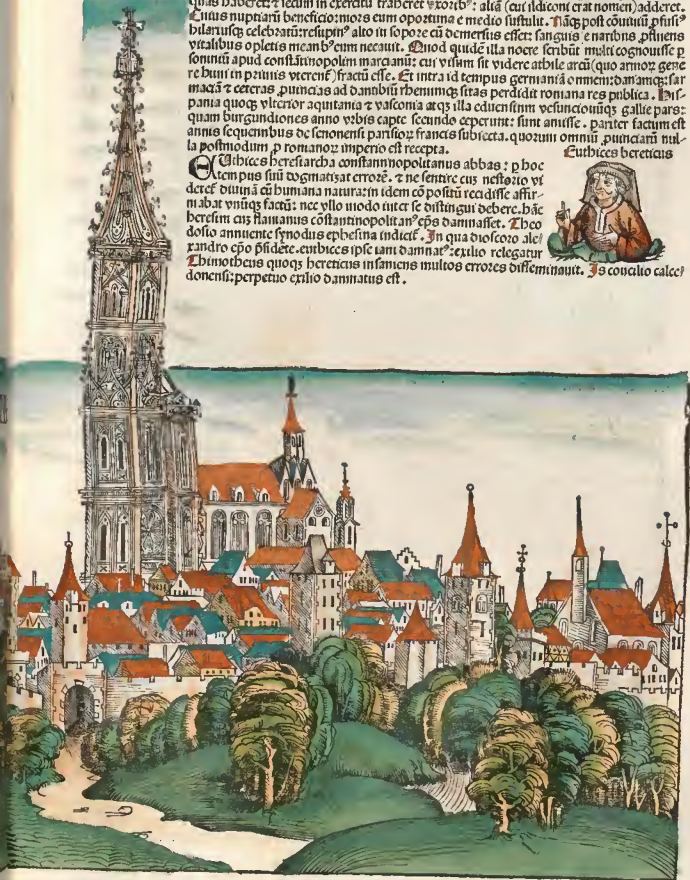 quas haberet: ⁊ secum in exercitu traheret vxorib⁹: aliā (cui ildiconi erat nomen) adderet.
hilariusq; celebratū: resupin⁹ alto in sopore cū demersus esset: sanguis e naribns ꝓfluens
vitalibus opletis meatib⁹ eum necauit. Quod quidē illa nocte scribūt multi cognouisse ꝑ
sonniū apud constātinopolim marcianū: cui visum sit videre athile arcū (quo armoꝝ gene
re huni in primis vterent̄) fractū esse. Et intra id tempus germaniā omnem: daniamq;: sar
maciā ⁊ ceteras ꝓuincias ad danubiū rhenumq; sitas perdidit romana res publica. His-
pania quoq; vlterior aquitania ⁊ vasconia atq;
quam burgundiones anno vrbis capte secundo ceperunt: sunt amisse. pariter factum est
annis sequentibus de senonensi parisioꝝ francis subiecta. quorum omniū ꝓuinciarū nul-
la postmodum ꝑ romanoꝝ imperio est recepta.
Euthices hereticus
Euthices heresiarcha constantinopolitanus abbas: ꝑ hoc
tempus suū dogmatisat errorē. ⁊ ne sentire cuz nestorio vi
deret̄ diuinā cū humana natura: in idem cōpositū recidisse affir-
mabat vnūq; factū: nec vllo modo inter se distingui debere. hāc
heresim cuz flauianus cōstantinopolitan⁹ ep̄s damnasset. Theo
dosio annuente synodus ephesina indicit̄. In qua dioscoro ale/
xandro ep̄o p̄sidēte. euthices ipse iam damnat⁹: exilio relegatur
Thimotheus quoq; hereticus insaniens multos errores disseminauit. Is concilio calce/
donensi: perpetuo exilio damnatus est.